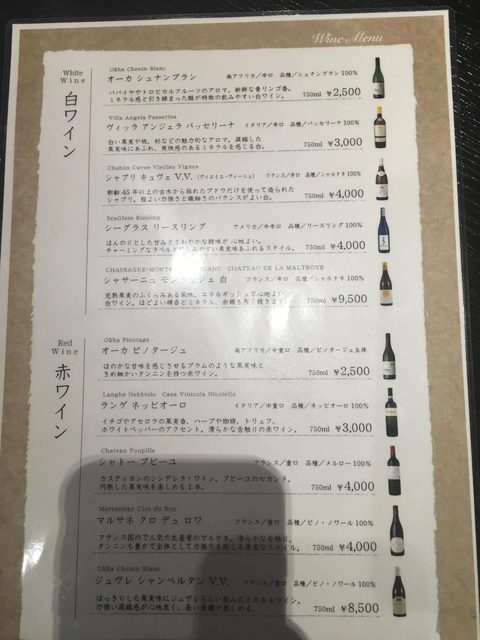 Wine Menu
White
Wine
白ワイン
Okha Chenin Blanc
オーカ シュナンブラン 南アフリカ／辛口 品種／シュナンブラン 100%
パパイヤやトロピカルフルーツのアロマ、新鮮な青リンゴ香。
ミネラル感と引き締まった酸が特徴の飲みやすい白ワイン。 750ml ¥2,500
Villa Angela Passerina
ヴィッラ アンジェラ パッセリーナ イタリア／辛口 品種／パッセリーナ 100%
白い果実や桃、杉などの魅力的なアロマ。凝縮した
果実味にあふれ、爽快感のあるミネラルを感じる白。 750ml ¥3,000
Chablis Cuvee Vieilles Vignes
シャブリ キュヴェ V.V. （ヴィエイユ・ヴィーニュ） フランス／辛口 品種／シャルドネ 100%
樹齢 45 年以上の古木から採れたブドウだけを使って造られた
シャブリ。程よい力強さと繊細さのバランスがよい白。 750ml ¥4,000
SeaGlass Riesling
シーグラス リースリング アメリカ／中辛口 品種／リースリング 100%
ほんのりとした甘みとさわやかな酸味が心地よい。
チャーミングなラベルと 果実味あふれるスタイル。 750ml ¥4,000
CHASSAGNE-MONTRACHET BLANC CHATEAU DE LA MALTROYE
シャサーニュ モンラッシェ 白 フランス／辛口 品種／シャルドネ 100%
完熟果実のふくらみある風味、エネルギッシュで心地よい
白ワイン。ほどよい樽香とミネラル、余韻も長く続きます。 750ml ¥9,500
Red
Wine
赤ワイン
Okha Pinotage
オーカ ピノタージュ 南アフリカ／中重口 品種／ピノタージュ主体
ほのかな甘味を感じさせるプラムのような果実味と
きめ細かいタンニンを持つ赤ワイン。 750ml ¥2,500
Langhe Nebbiolo Casa Vinicola Nicolello
ランゲ ネッビオーロ イタリア／中重口 品種／ネッビオーロ 100%
イチゴやアセロラの果実香、ハーブや胡椒、トリュフ、
ホワイトペッパーのアクセント。滑らかな舌触りの赤ワイン。 750ml ¥3,000
Chateau Poupille
シャトー プピーユ フランス／重口 品種／メルロー 100%
カスティヨンのシンデレラ・ワイン、プピーユのセカンド。
円熟した果実味を楽しめる 1 本。 750ml ¥4,000
Marsannay Clos du Roy
マルサネ クロ デュ ロワ フランス／重口 品種／ピノ・ノワール 100%
フランス国内で人気の生産者のマルサネ。滑らかな舌触り、
タンニンも豊かで全体として力強さを感じるスタイル。 750ml ¥4,000
Okha Chenin Blanc
ジュヴレ シャンベルタン V.V. フランス／重口 品種／ピノ・ノワール 100%
はっきりした果実味にジュヴレらしい飲み応えのあるワイン。
力強い凝縮感が心地良く、長い余韻が楽しめる。 750ml ¥8,500